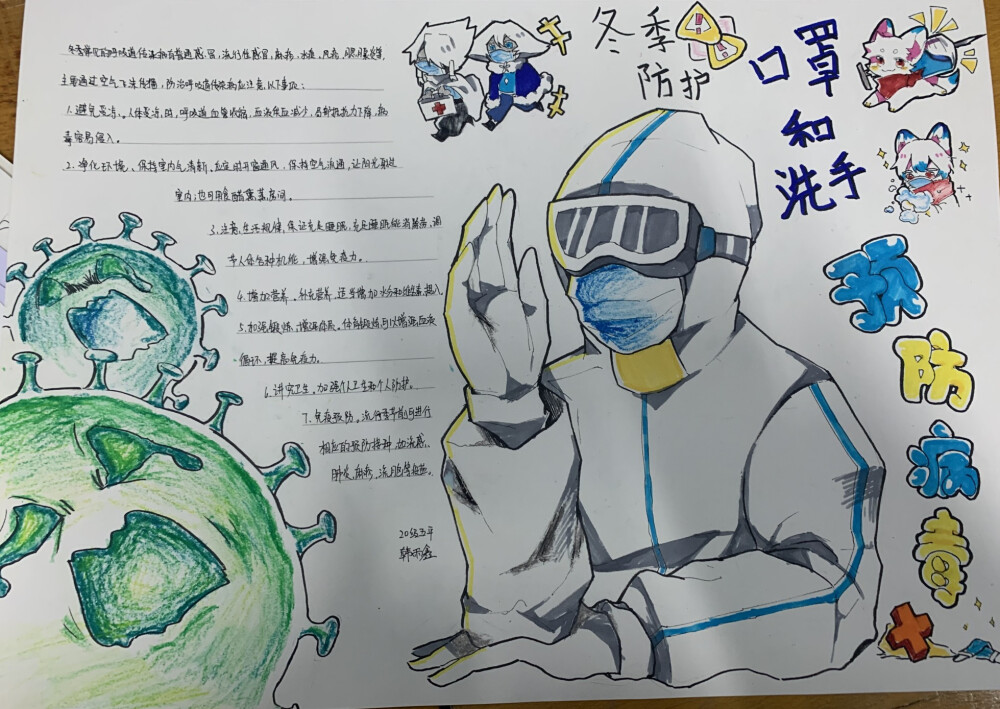 冬季防护
口罩
和
洗手
预防病毒
冬季常见的呼吸道传染病有普通感冒,流行性感冒,麻疹,水痘,风疹,腮腺炎等,
主要通过空气飞沫传播,防治呼吸道传染病应注意以下事项:
1.避免受凉。人体受凉时,呼吸道血管收缩,血液供应减少,局部抵抗力下降,病
毒容易侵入。
2.净化环境、保持室内空气清新,应定时开窗通风,保持空气流通,让阳光射进
室内;也可用食醋熏蒸房间。
3.注意生活规律,保证充足睡眠,充足睡眠能消除疲劳,调
节人体各种机能,增强免疫力。
4.增加营养,补充营养,适当增加水分和维生素摄入。
5.加强锻炼,增强体质。体育锻炼可以增强血液
循环,提高免疫力。
6.讲究卫生。加强个人卫生和个人防护。
7.免疫预防。流行季节前可进行
相应的预防接种,如流感,
肺炎,麻疹,流脑等疫苗。